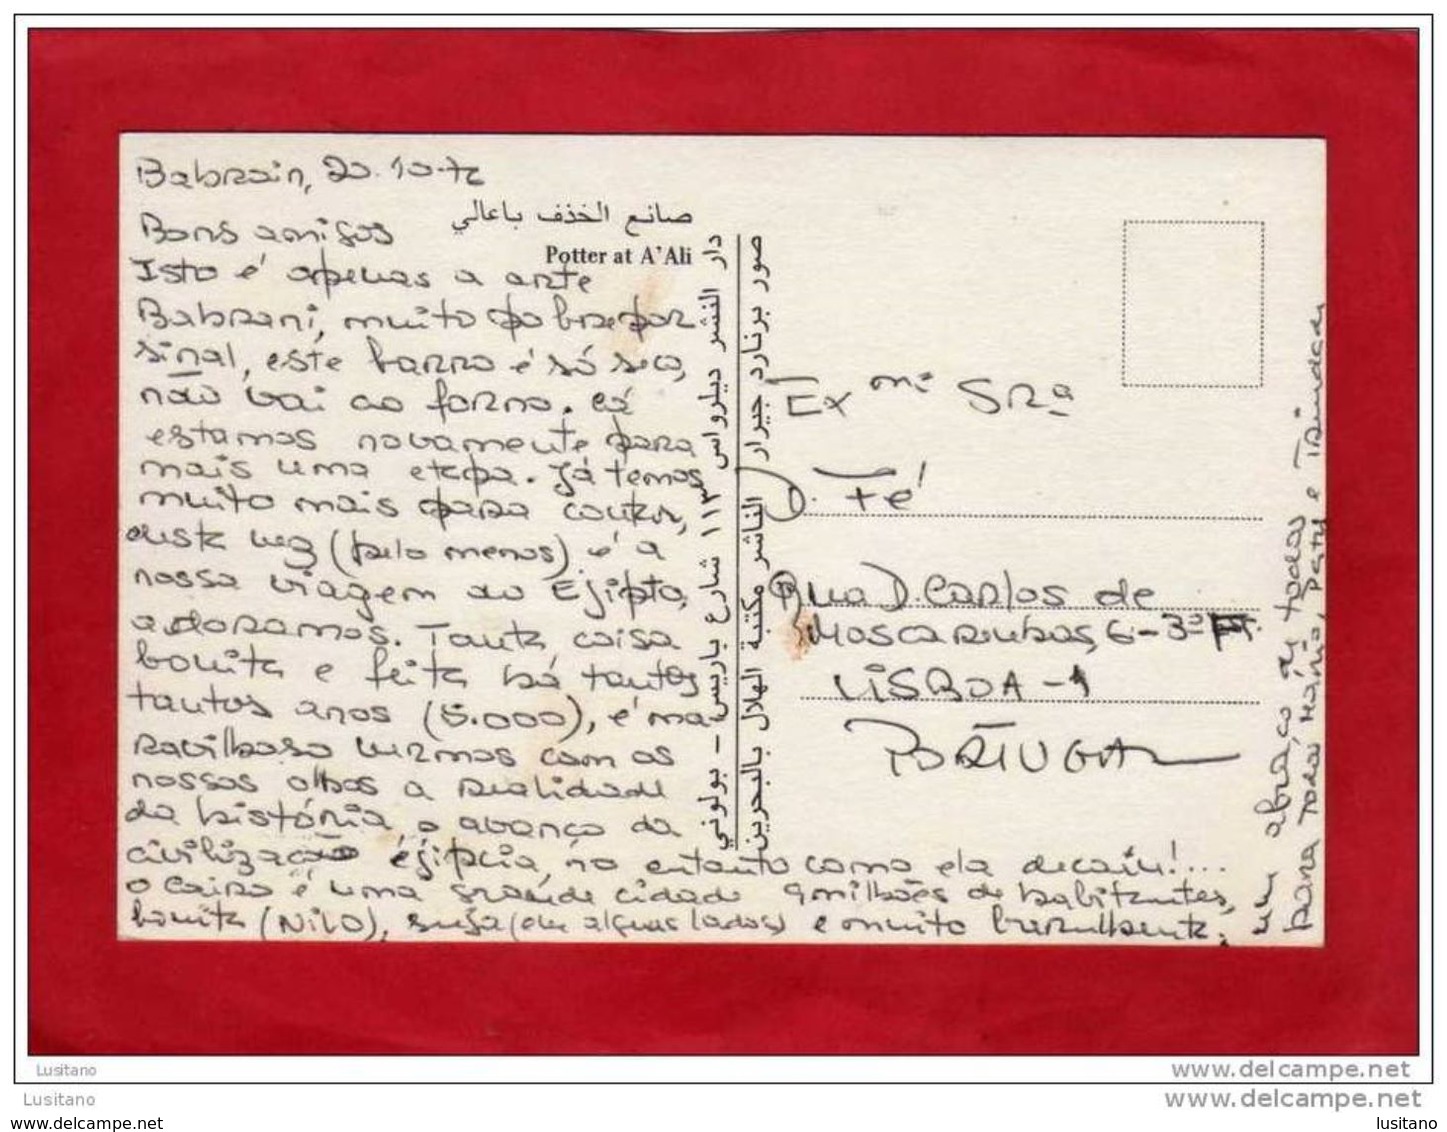 Bahrain, 20.10.76
صانع الخذف باعالي
Potter at A'Ali
Bons amigos
Isto é apenas a arte
Bahrani, muito pobre por
sinal, este barro é só seco,
não vai ao forno. Cá
estamos novamente para
mais uma etapa. Já temos
muito mais para contar,
desta vez (pelo menos) é a
nossa viagem ao Egipto,
adoramos. Tanta coisa
bonita e feita há tantos
tantos anos (5.000), é ma-
ravilhoso vermos com os
nossos olhos a realidade
da história, o avanço da
civilização égipcia, no entanto como ela decaiu!...
o Cairo é uma grande cidade 9 milhões de habitantes,
bonita (NILO), suja (em alguns lados) e muito barulhenta.
um abraço de todos
para toda Maria, e Trindade
دار النشر ديلرواس ١١٣ شارع باريس - بولوني
صور برنارد جيرار
الناشر مكتبة الهلال بالبحرين
Exmª Srª
D. Fé
Rua D. Carlos de
Mascarenhas, 6-3º
LISBOA-1
PORTUGAL
Lusitano
www.delcampe.net
Lusitano
www.delcampe.net
lusitano
www.delcampe.net
lusitano